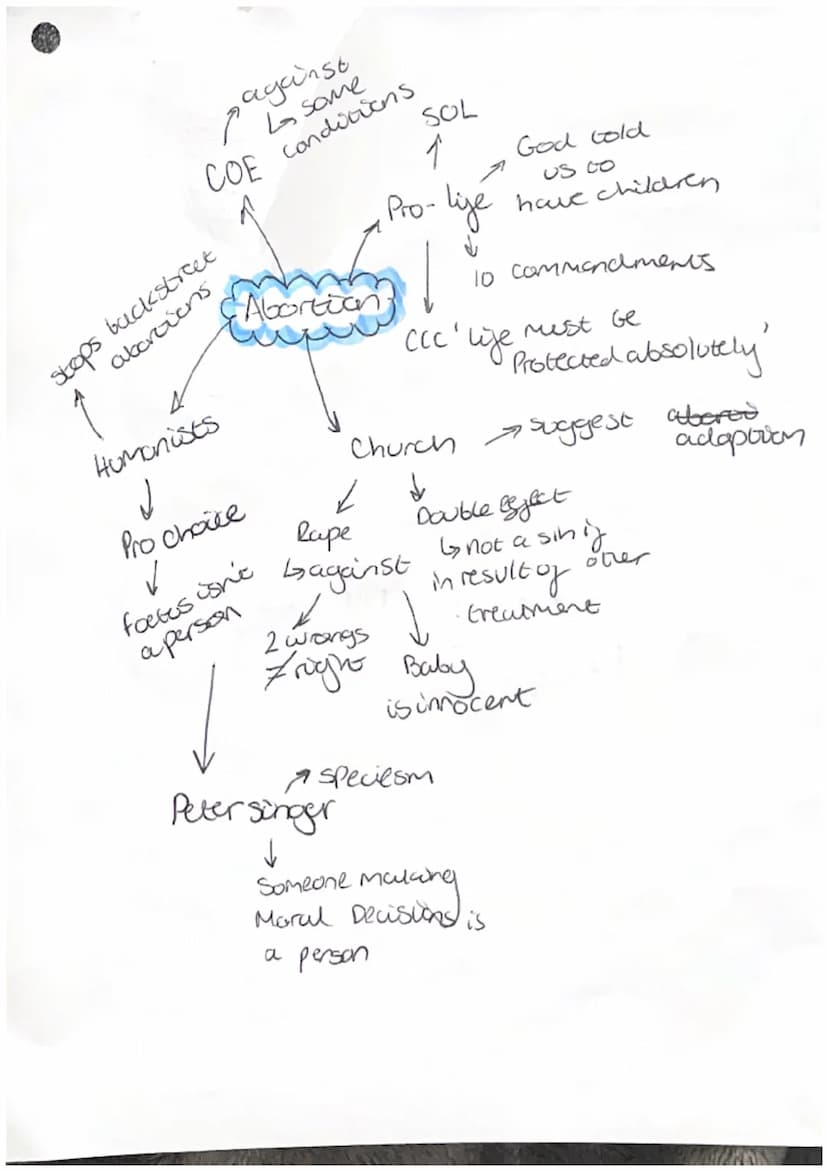 against
↳ some
conditions
COE
SOL
God told
us to
have children
Pro-life
10 commandments
CCC 'life must be
Protected absolutely'
Abortion
stops backstreet
abortions
Humanists
Pro choice
foetus isn't
a person
Church
suggest
adoption
Rape
↳ against
2 wrongs
≠ right
Baby
is innocent
Double effect
↳ not a sin if
in result of other
treatment
Peter singer
speciesm
Someone making
Moral Decisions is
a person